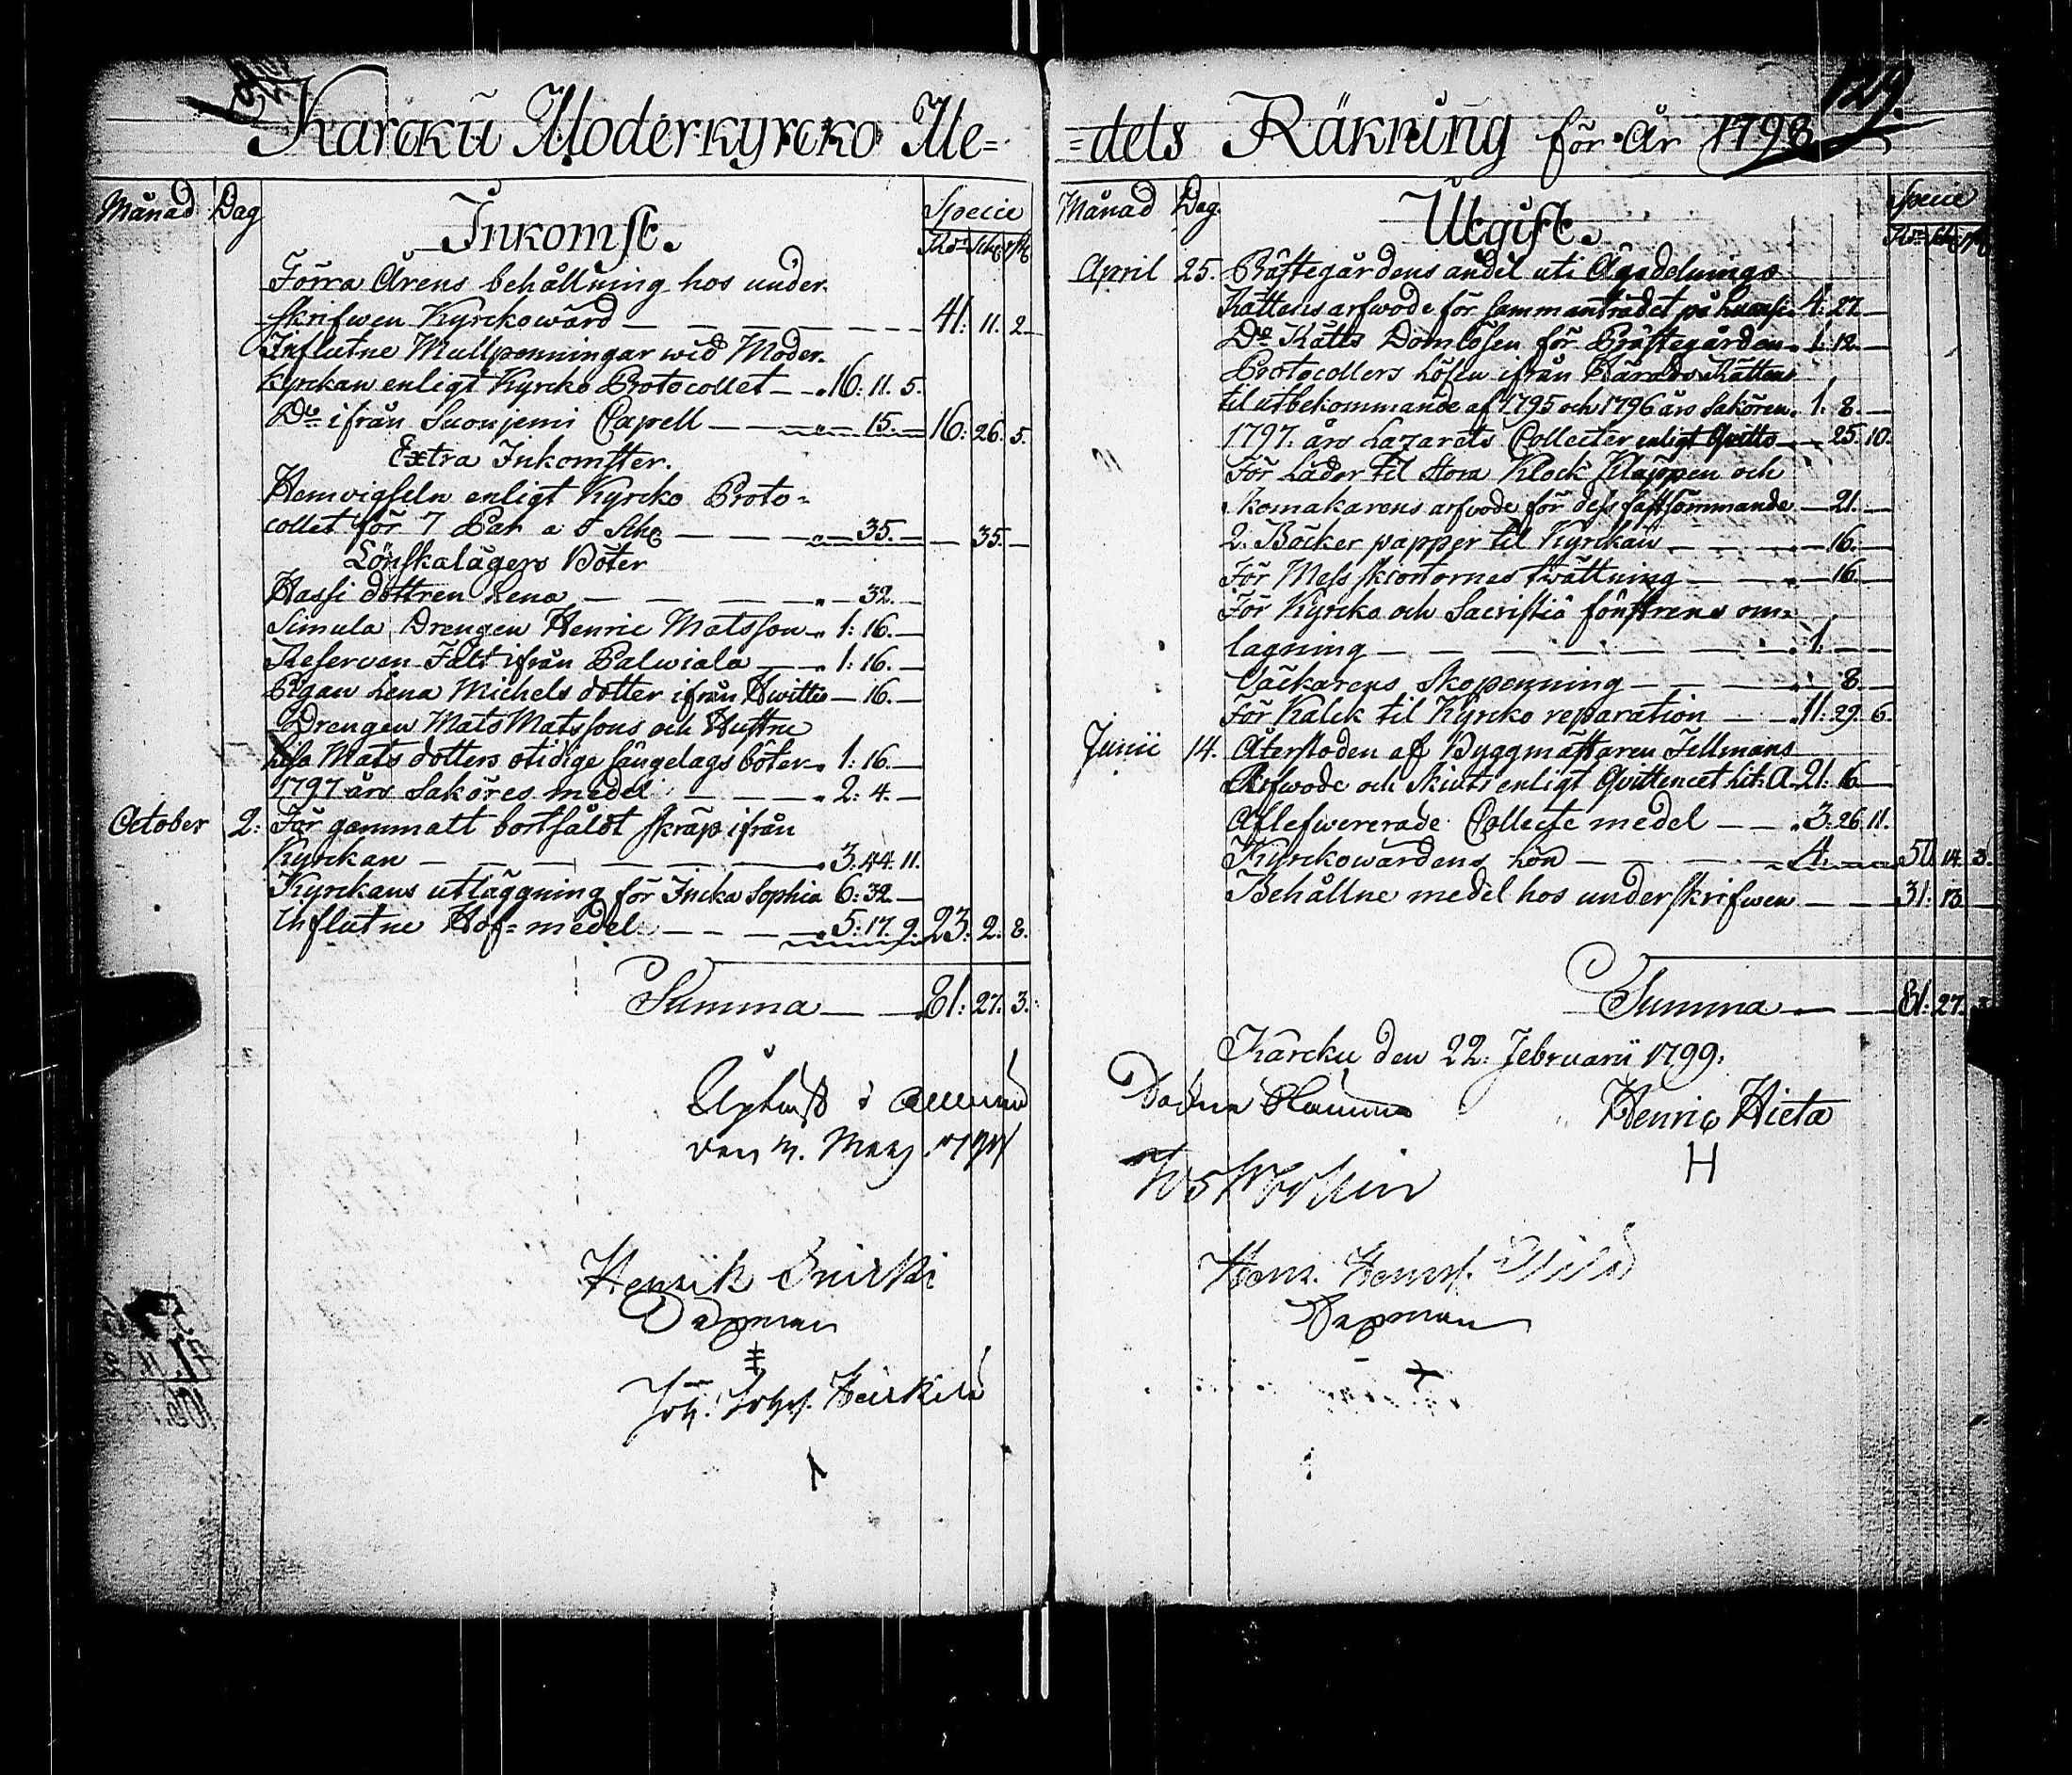 Karcku Moderkyrcko Me=
Månad Dag Inkomst. Specie
R:dr Sch. rst.
Förra Årens behållning hos under-
skrifwen Kyrckowärd — 41: 11. 2.
Influtne Mullpenningar wid Moder-
kyrckan enligt Kyrcko Protocollet — 16: 11. 5.
D:o ifrån Suonjemi Capell — 15. — 16: 26. 5.
Extra Inkomster.
Hemvigseln enligt Kyrcko Proto-
collet för 7 Par a 5 Sch. — 35. — 35. —
Lönskalägers Böter
Hassi dottren Lena — 32. —
Simula Drengen Henric Matsson 1: 16. —
Reserven Fält ifrån Palwiala — 1: 16. —
Pigan Lena Michels dotter ifrån Hwittis — 16. —
Drengen Mats Matssons och Hustru
Lisa Mats dotters otidige sängelags böter 1: 16. —
1797 års Saköres medel — 2: 4. —
October 2: För gammalt bortsåldt skräp ifrån
Kyrckan — 3: 44. 11.
Kyrckans utläggning för Incka Sophia 6: 32. —
Influtne Håf=medel — 5: 17. 9. 23: 2. 8.
Summa — 81: 27. 3.
den Martz
Henrik
Sexman
Joh: Johss. Heickilä
=dets Räkning för År 1798
129.
Månad Dag. Utgift. Specie
R:dr Sch. rst.
April 25. Prästegårdens andel uti Ägodelnings
Rättens arfwode för sammanträdet på 4: 27. —
D:o Rätts Domlösen för Prästegården 1: 12. —
Protocollers Lösen ifrån Härads Rätten
til utbekommande af 1795 och 1796 års Sakören 1: 8. —
1797. års Lazarets Collecter enligt Qvitto — 25. 10.
För Läder til stora Klock Kläppen och
skomakarens arfwode för dess fastsömmande — 21. —
2. Böcker papper til Kyrckan — 16. —
För Mess skiortornes twättning — 16. —
För Kyrcko och Sacristiä fönstrens om-
lagning — 1: —
Väckarens Skopenning — 8. —
För Kalck til Kyrcko reparation — 11: 29. 6.
Junii 14. Återstoden af Byggmästaren Tillmans
Arfwode och skiuts enligt Qvittencet Lit: A. 21: 16. —
Aflefwererade Collecte medel — 3: 26. 11.
Kyrckowärdens Lön — 4. — 50: 14. 3.
Behållne medel hos underskrifwen — 31: 13. —
Summa — 81: 27. 3.
Karcku den 22. Februarii 1799.
Henric Hieta
H
Sexman